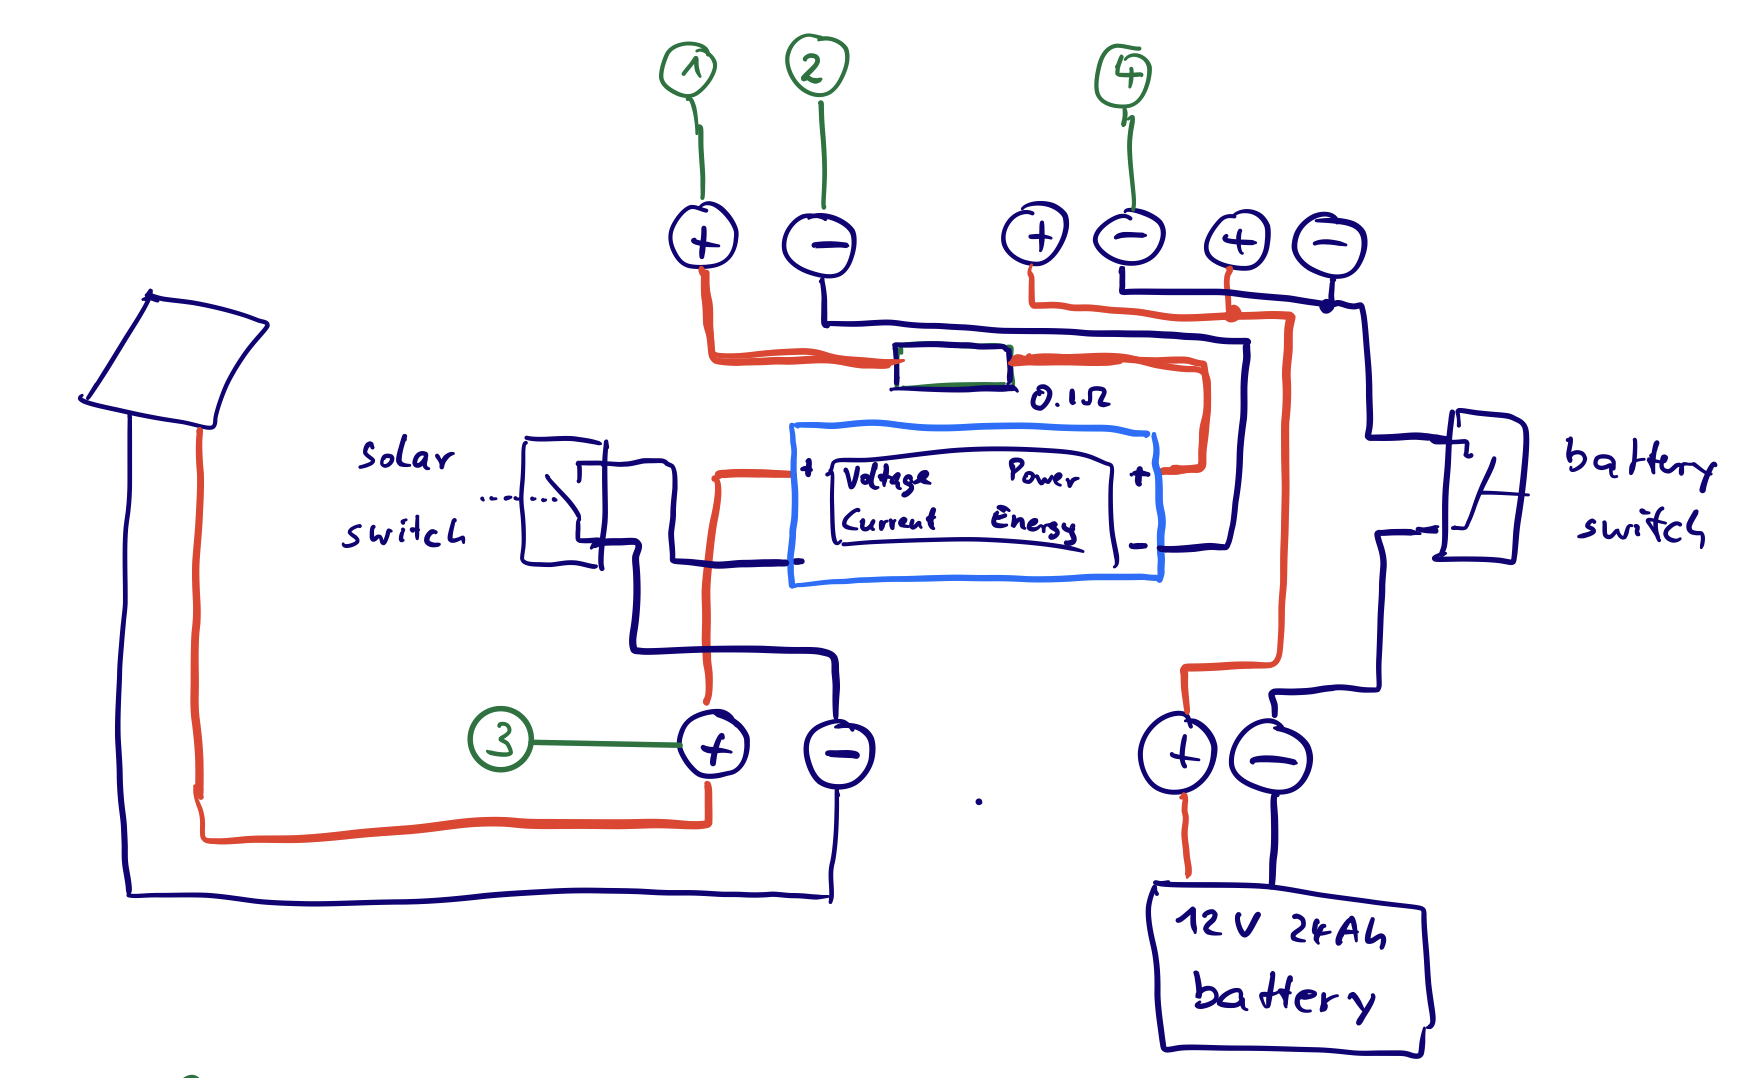 1 2 4
+ - + - + -
0.1Ω
solar
switch
+ Voltage Power +
Current Energy
- -
battery
switch
3 + - + -
12V 24Ah
battery